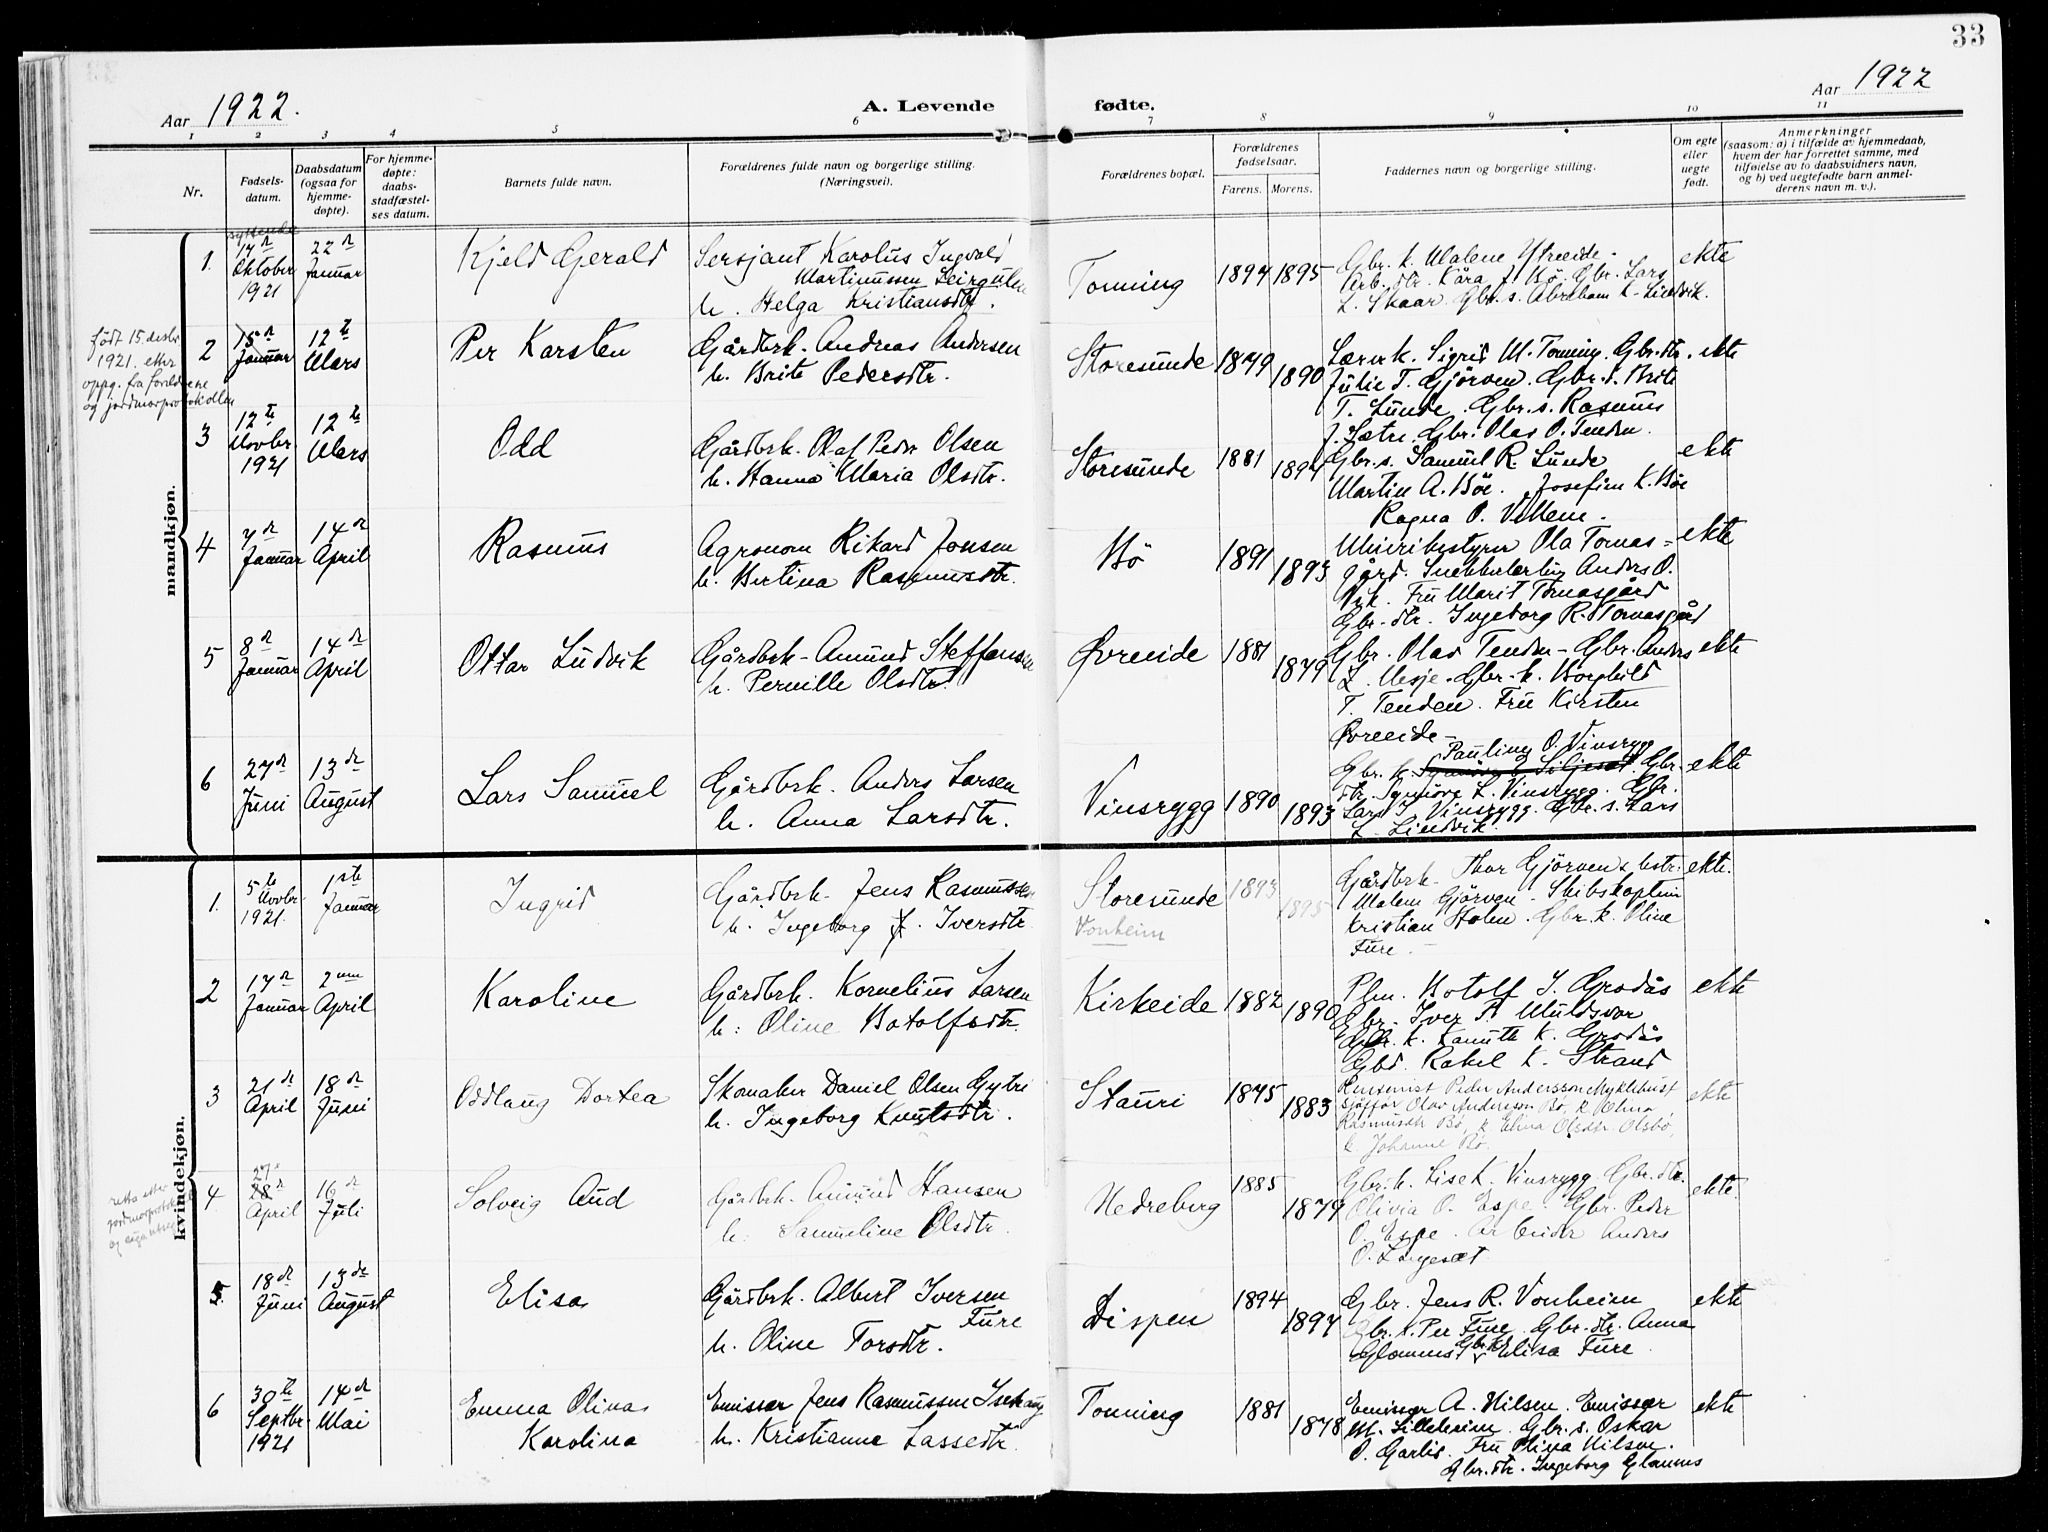 33
Aar 1922.
A. Levende fødte.
Aar 1922
1 2 3 4 5 6 7 8 9 10 11
Nr.
Fødsels-
datum.
Daabsdatum
(ogsaa for
hjemme-
døpte).
For hjemme-
døpte:
daabs-
stadfæstel-
ses datum.
Barnets fulde navn.
Forældrenes fulde navn og borgerlige stilling.
(Næringsvei).
Forældrenes bopæl.
Forældrenes
fødselsaar.
Farens. Morens.
Faddernes navn og borgerlige stilling.
Om egte
eller
uegte
født.
Anmerkninger
(saasom: a) i tilfælde av hjemmedaab,
hvem der har forrettet samme, med
tilføielse av to daabsvidners navn,
og b) ved uegtefødte barn anmel-
derens navn m. v.).
mandkjøn.
1.
17 d
Oktober
1921
22 d
Januar
Kjeld Gerald
Sersjant Karolus Ingvald
Martinussen Leirgulen
h. Helga Kristiansdtr.
Tonning
1894 1895
Gbr. k. Malene Ytreeide.
Arb. dtr. Kåra J. Bö. Gbr. Lars
L. Skaar. Gbr. s. Abraham L. Lindvik.
ekte
født 15. desbr.
1921. etter
oppg. fra foreldrene
og jordmorprotokollen
2
15 d
Januar
12 t
Mars
Per Karsten
Gårdbrk. Andreas Andersen
h. Brite Pedersdtr.
Storesunde
1879 1890
Lærerk. Sigrid M. Tonning. Gbr. dtr.
Julie T. Gjörven. Gbr. s. Brite
T. Lunde. Gbr. s. Rasmus
J. Sætre. Gbr. Olav O. Tenden.
ekte
3
12 te
Novbr.
1921
12 te
Mars
Odd
Gårdbrk. Olaf Peder Olsen
h. Hanna Maria Olsdtr.
Storesunde
1881 1894
Gbr. s. Samuel R. Lunde
Martin A. Böe. Josefine K. Böe
Ragna O. Vellene.
ekte
4
7 d
Januar
14 d
April
Rasmus
Agronom Rikard Jonsen
h. Bertina Rasmusdtr.
Bö
1891 1893
Meieribestyrer Ola Tomas=
gård. Snekkerlærling Anders O.
Vik. Fru Marit Tomasgård
Gbr. dtr. Ingeborg R. Tomasgård
ekte
5
8 d
Januar
14 d
April
Ottar Ludvik
Gårdbrk. Amund Steffensen
h. Pernille Olsdtr.
Øvreeide
1881 1879
Gbr. Olav Tenden - Gbr. Anders
L. Mesje. Gbr. k. Borghild
T. Tenden. Fru Kirsten
Øvreeide
ekte
6
27 d
Juni
13 de
August
Lars Samuel
Gårdbrk. Anders Larsen
h. Anna Larsdtr.
Vinsrygg
1890 1893
Pauline O. Vinsrygg
Gbr. k. Gbr.
dtr. Synnöve L. Vinsrygg. Gbr.
Lars J. Vinsrygg. Gbr. s. Lars
L. Lindvik.
ekte
kvindekjøn.
1.
5 te
Novbr.
1921.
1 ste
Januar
Ingrid
Gårdbrk. Jens Rasmussen
h. Ingeborg J. Iversdtr.
Storesunde
Vonheim
1893 1895
Gårdbrk. Thor Gjörven & hstr.
Malene Gjörven - Skibskaptein
Kristian Holen. Gbr. k. Oline
Fure
ekte.
2
17 d
Januar
2 nen
April
Karoline
Gårdbrk. Kornelius Larsen
h: Oline Botolfsdtr.
Kirkeide
1882 1890
Plm. Botolf S. Grodås
Gbr. Iver P. Muldsvor
Gbr. k. Kanutte K. Grodås
Gbd. Rakel K. Strand
ekte
3
21 de
April
18 de
Juni
Oddlaug Dortea
Skomaker Daniel Olsen Gytri
h. Ingeborg Knutsdtr.
Stauri
1875 1883
Peder Andersson Myklebust
sjåför Olav Anderson Bö, k Elina
Rasmusdtr Bö, k Elina Olsdtr. Olsbö,
k Johanne Bö.
ekte
retta etter
jordmorprotokoll
4
27
28 d
April
16 d
Juli
Solveig Aud
Gårdbrk. Anund Hansen
h: Samueline Olsdtr.
Nedreberg
1885 1879
Gbr. k. Lise L. Vinsrygg. Gbr. dtr.
Olivia O. Espe. Gbr. Peder
O. Espe. Arbeider Anders
O. Langesæt
ekte.
5.
18 de
Juni
13 de
August
Elisa
Gårdbrk. Albert Iversen
Fure
h. Oline Torsdtr.
Dispen
1894 1897
Gbr. Jens R. Vonheim
Gbr. s. Per Fure. Gbr. dtr. Anna
Glomnes Gbr. k. Elisa Fure
ekte
6
30 te
Septbr.
1921
14 d
Mai
Emma Olina
Karolina
Emissær Jens Rasmussen Isehaug
h. Kristianne Lassedtr.
Tonning
1881 1878
Emissær A. Nilsen. Emissær
M. Lilleheim. Gbr. s. Oskar
O. Garlis. Fru Olina Nilsen.
Gbr. dtr. Ingeborg Glomnes
ekte